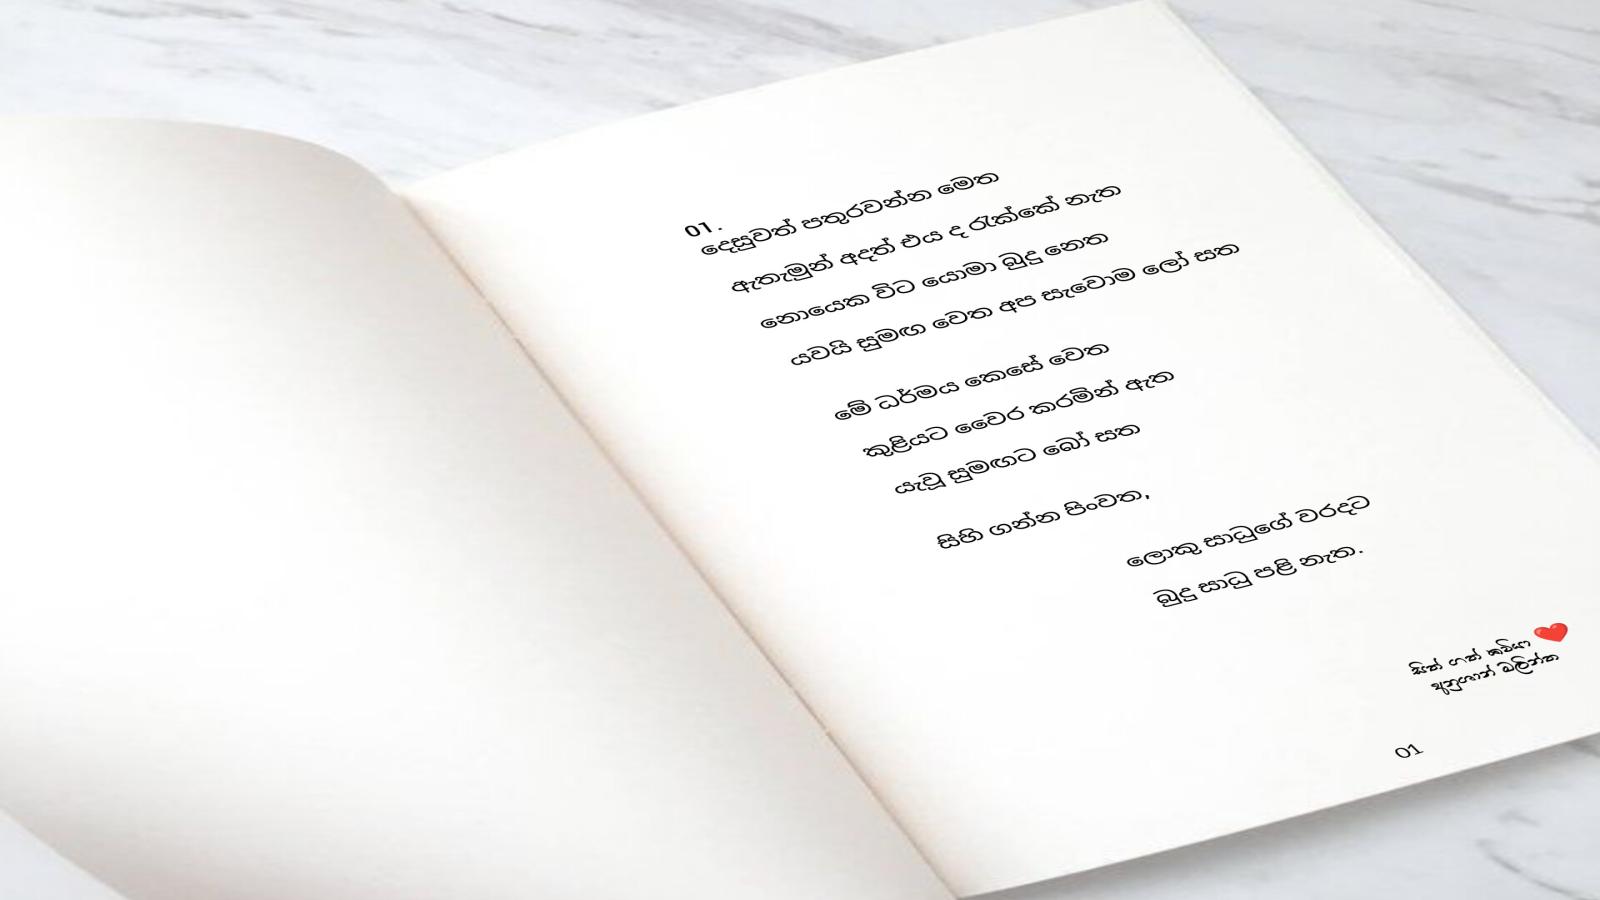 01.
දෙසුවත් පතුරවන්න මෙත
ඇතැමුන් අදත් එය ද රැක්කේ නැත
නොයෙක විට යොමා බුදු නෙත
යවයි සුමඟ වෙත අප සැවොම ලෝ සත
මේ ධර්මය කෙසේ වෙත
කුළියට වෛර කරමින් ඇත
යැවූ සුමඟට බෝ සත
සිහි ගන්න පිංවත,
ලොකු සාධුගේ වරදට
බුදු සාධු පළි නැත.
සිත් ගත් කවියා ❤️
අනුශාන් බලින්ත
01